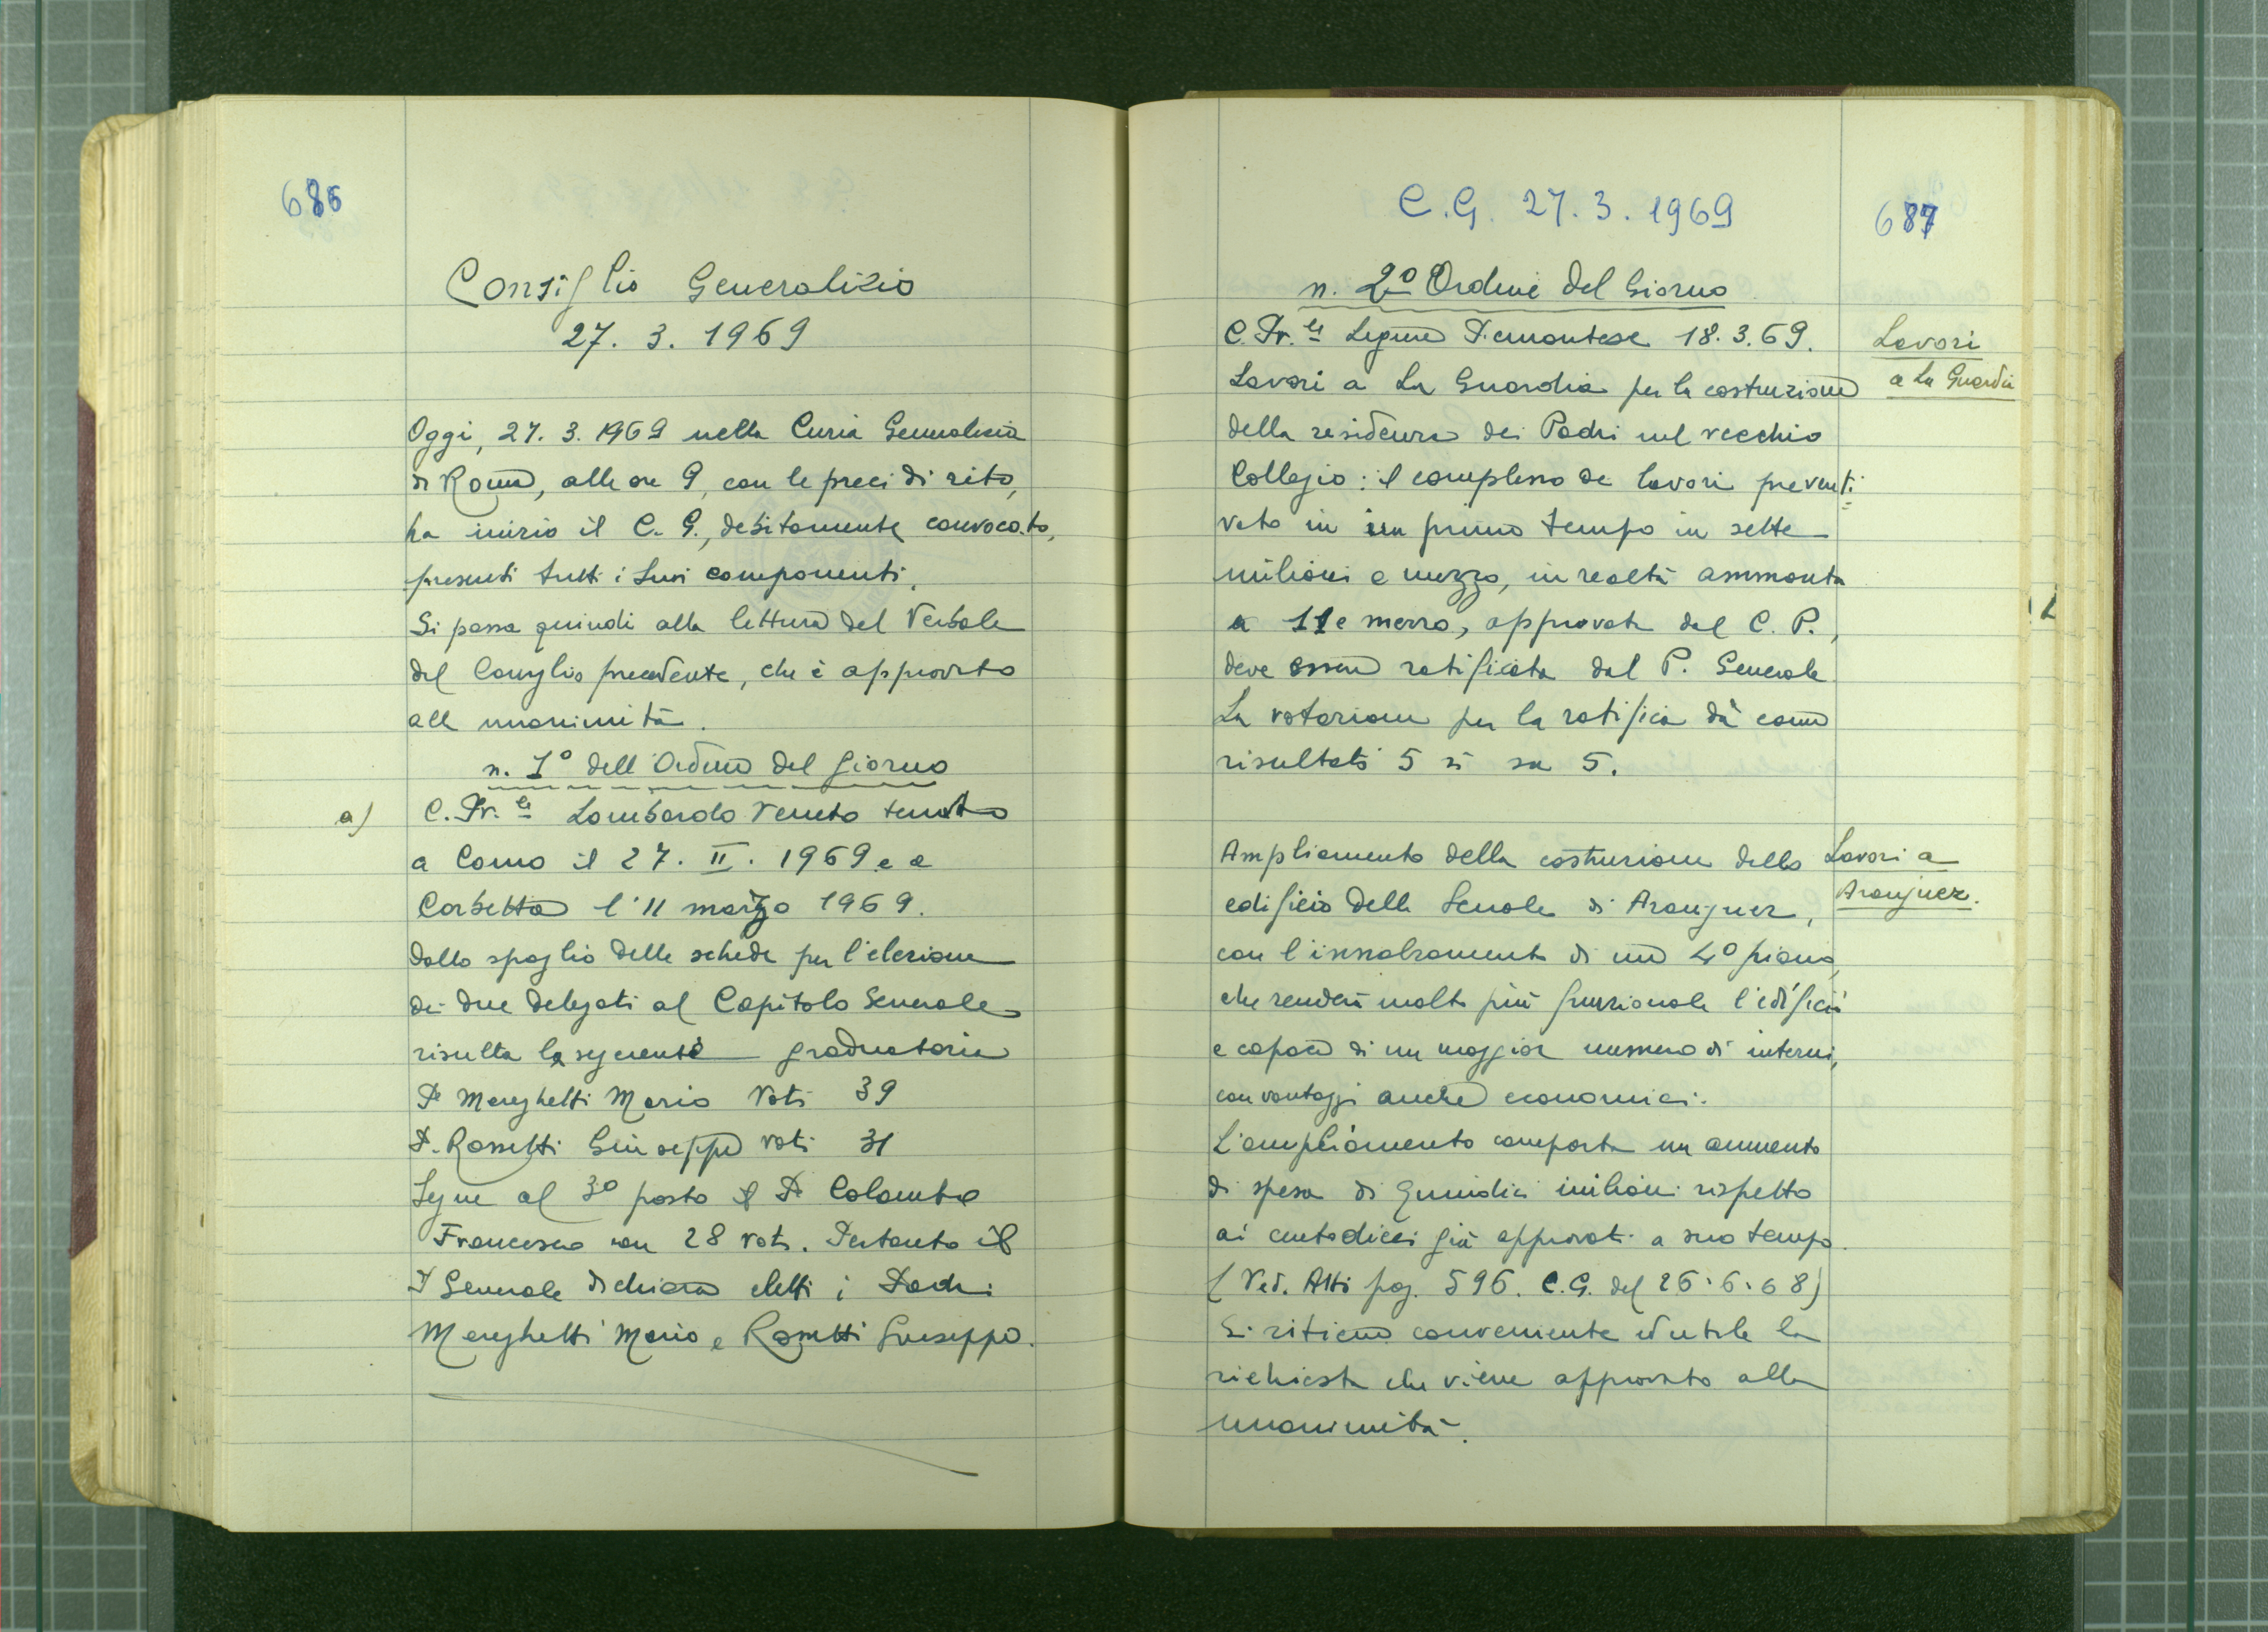 686
Consiglio Generalizio
27. 3. 1969
Oggi, 27. 3. 1969 nella Curia Generalizia
di Roma, alle ore 9, con le preci di rito,
ha inizio il C. G., debitamente convocato,
presenti tutti i suoi componenti.
Si passa quindi alla lettura del Verbale
del Consiglio precedente, che è approvato
all unanimità.
n. 1° dell'Ordine del giorno
a) C. Pr.le Lombardo Veneto tenuto
a Como il 27. II. 1969 e a
Corbetta l'11 marzo 1969.
Dallo spoglio delle schede per l'elezione
dei due delegati al Capitolo Generale
risulta la seguente graduatoria
P. Mereghetti Mario Voti 39
P. Rossetti Giuseppe voti 31
Segue al 3° posto il P. Colombo
Francesco con 28 voti. Pertanto il
P. Generale dichiara eletti i Padri
Mereghetti Mario e Rossetti Giuseppe.
C.G. 27. 3. 1969
687
n. 2° Ordine del Giorno
C. Pr.le Ligure Piemontese 18. 3. 69.
Lavori
a La Guardia
Lavori a La Guardia per la costruzione
della residenza dei Padri nel vecchio
Collegio: il complesso dei lavori preventi
vato in un primo tempo in sette
milioni e mezzo, in realtà ammonta
a 11 e mezzo, approvata dal C. P.,
deve essere ratificata dal P. Generale
La votazione per la ratifica dà come
risultati 5 sì su 5.
Lavori a
Aranjuez.
Ampliamento della costruzione dello
edificio delle Scuole di Aranjuez,
con l'innalzamento di un 4° piano,
che renderà molto più funzionale l'edificio
e capace di un maggior numero di interni,
con vantaggi anche economici.
L'ampliamento comporta un aumento
di spesa di quindici milioni rispetto
ai centodieci già approvati a suo tempo.
(Ved. Atti pag. 596. C.G. del 26.6.68)
Si ritiene conveniente ed utile la
richiesta che viene approvato alla
unanimità.